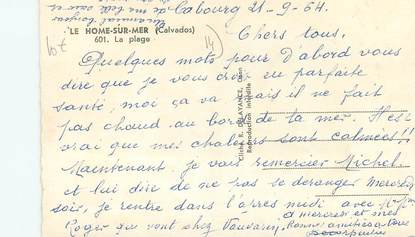 de Cabourg 21-9-64.
LE HOME-SUR-MER (Calvados)
601. La plage
10f
14
Chers tous,
Quelques mots pour d'abord vous
dire que je vous crois en parfaite
santé, moi ça va mais il ne fait
pas chaud au bord de la mer. Il est
vrai que mes chaleurs sont calmées!!
Maintenant je vais remercier Michel
et lui dire de ne pas se déranger Mercredi
soir, je rentre dans l'après midi avec
Roger qui vont chez
à mercredi et mes
Bonnes amitiés à tous
Cliché R. DELAVANCE, Caen
Reproduction interdite